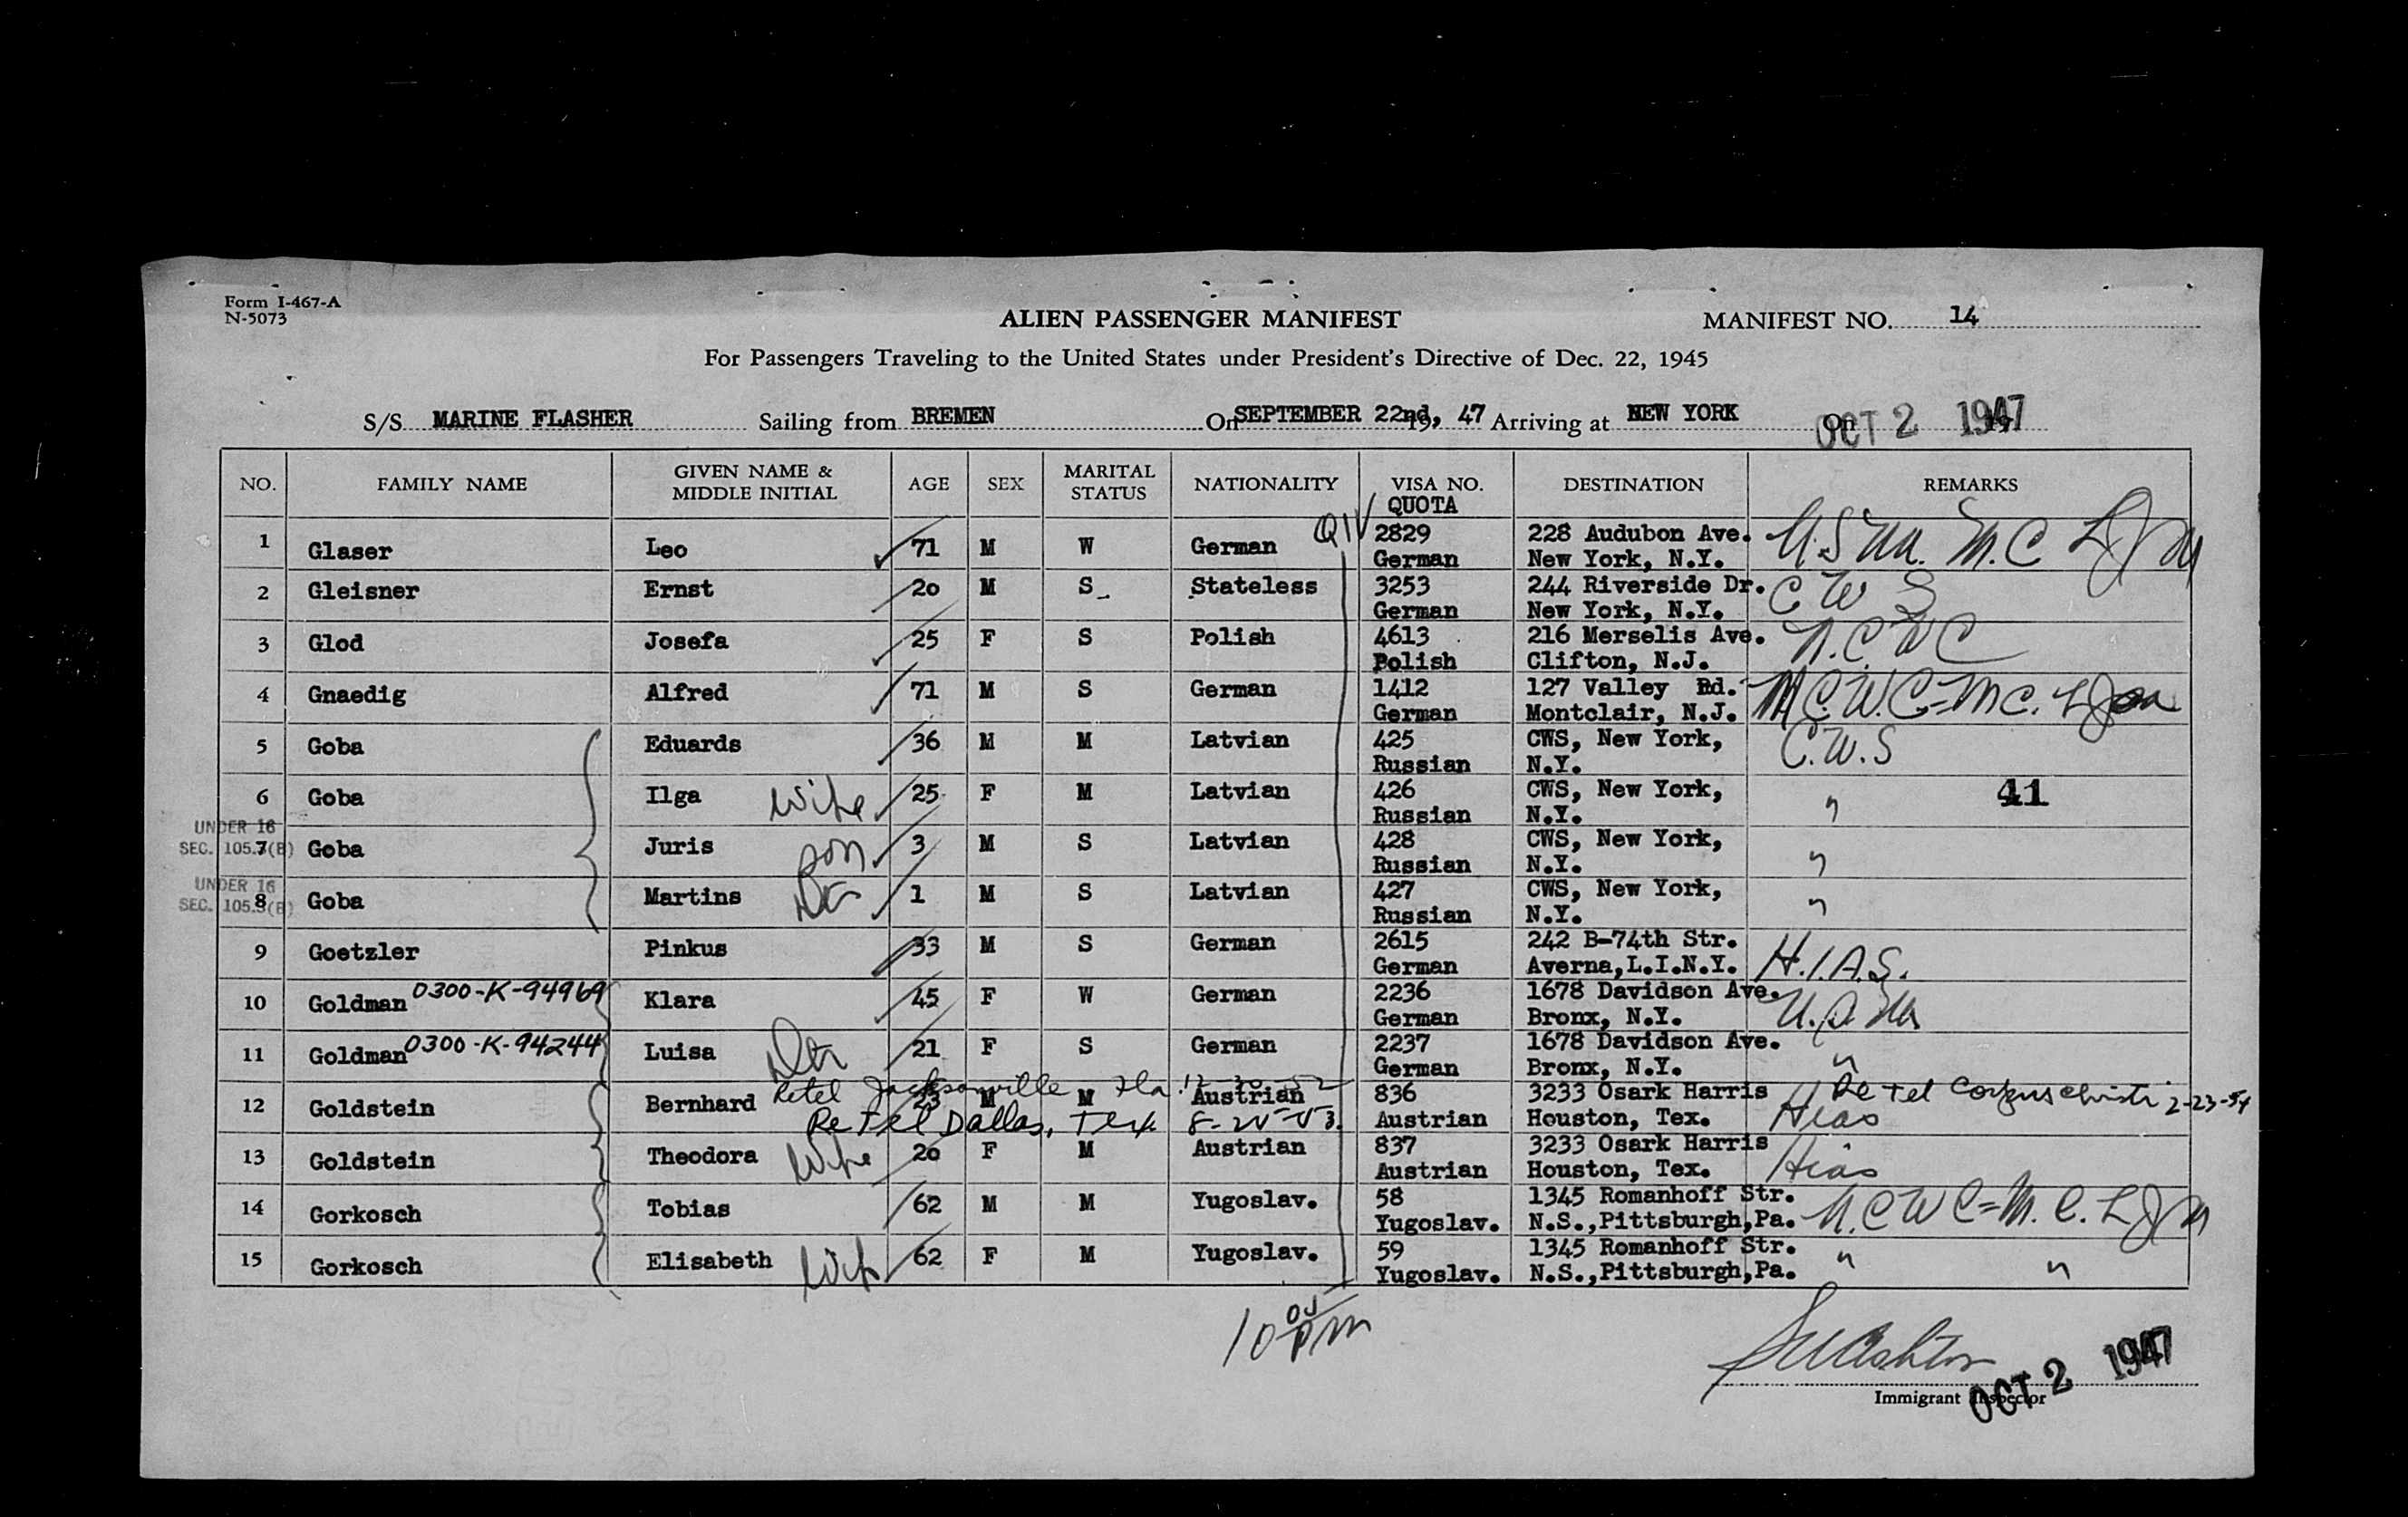 Form I-467-A
N-5073
ALIEN PASSENGER MANIFEST
MANIFEST NO. 14
For Passengers Traveling to the United States under President's Directive of Dec. 22, 1945
S/S MARINE FLASHER Sailing from BREMEN On SEPTEMBER 22nd, 19 47 Arriving at NEW YORK On OCT 2 1947
NO. FAMILY NAME GIVEN NAME & MIDDLE INITIAL AGE SEX MARITAL STATUS NATIONALITY VISA NO. QUOTA DESTINATION REMARKS
1 Glaser Leo 71 M W German QIV 2829 228 Audubon Ave. M.C.
German New York, N.Y.
2 Gleisner Ernst 20 M S Stateless 3253 244 Riverside Dr. C W S
German New York, N.Y.
3 Glod Josefa 25 F S Polish 4613 216 Merselis Ave. N.C.W.C
Polish Clifton, N.J.
4 Gnaedig Alfred 71 M S German 1412 127 Valley Rd. N.C.W.C=M.C.
German Montclair, N.J.
5 Goba Eduards 36 M M Latvian 425 CWS, New York, C.W.S
Russian N.Y.
6 Goba Ilga wife 25 F M Latvian 426 CWS, New York, " 41
Russian N.Y.
UNDER 16
SEC. 105.3(B) 7 Goba Juris son 3 M S Latvian 428 CWS, New York, "
Russian N.Y.
UNDER 16
SEC. 105.3(B) 8 Goba Martins 1 M S Latvian 427 CWS, New York, "
Russian N.Y.
9 Goetzler Pinkus 33 M S German 2615 242 B-74th Str.
German Averna,L.I.N.Y. H.I.A.S.
10 Goldman 0300-K-94969 Klara 45 F W German 2236 1678 Davidson Ave.
German Bronx, N.Y.
11 Goldman 0300-K-94244 Luisa Dtr 21 F S German 2237 1678 Davidson Ave. "
German Bronx, N.Y.
Retel Jacksonville Fla. 12-30-52
12 Goldstein Bernhard 23 M M Austrian 836 3233 Osark Harris Re Tel Corpus Christi 2-23-54
Re Tel Dallas, Tex. 8-25-53 Austrian Houston, Tex. Hias
13 Goldstein Theodora wife 20 F M Austrian 837 3233 Osark Harris
Austrian Houston, Tex. Hias
14 Gorkosch Tobias 62 M M Yugoslav. 58 1345 Romanhoff Str. N.C.W.C=M.C.
Yugoslav. N.S.,Pittsburgh,Pa.
15 Gorkosch Elisabeth wife 62 F M Yugoslav. 59 1345 Romanhoff Str. " "
Yugoslav. N.S.,Pittsburgh,Pa.
10 00 PM
Immigrant Inspector
OCT 2 1947